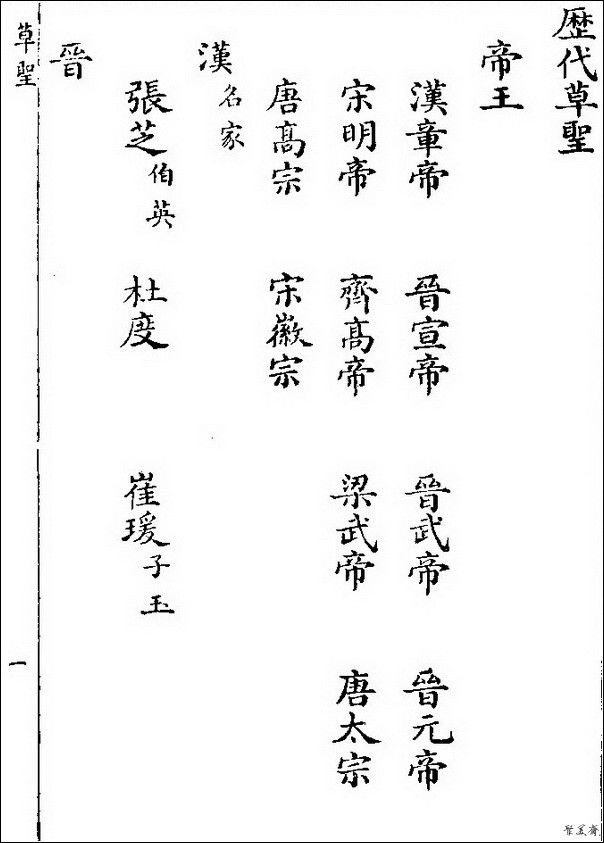 歷代草聖
帝王
漢章帝 晉宣帝 晉武帝 晉元帝
宋明帝 齊高帝 梁武帝 唐太宗
唐高宗 宋徽宗
漢名家
張芝伯英 杜度 崔瑗子玉
晉
草聖
一